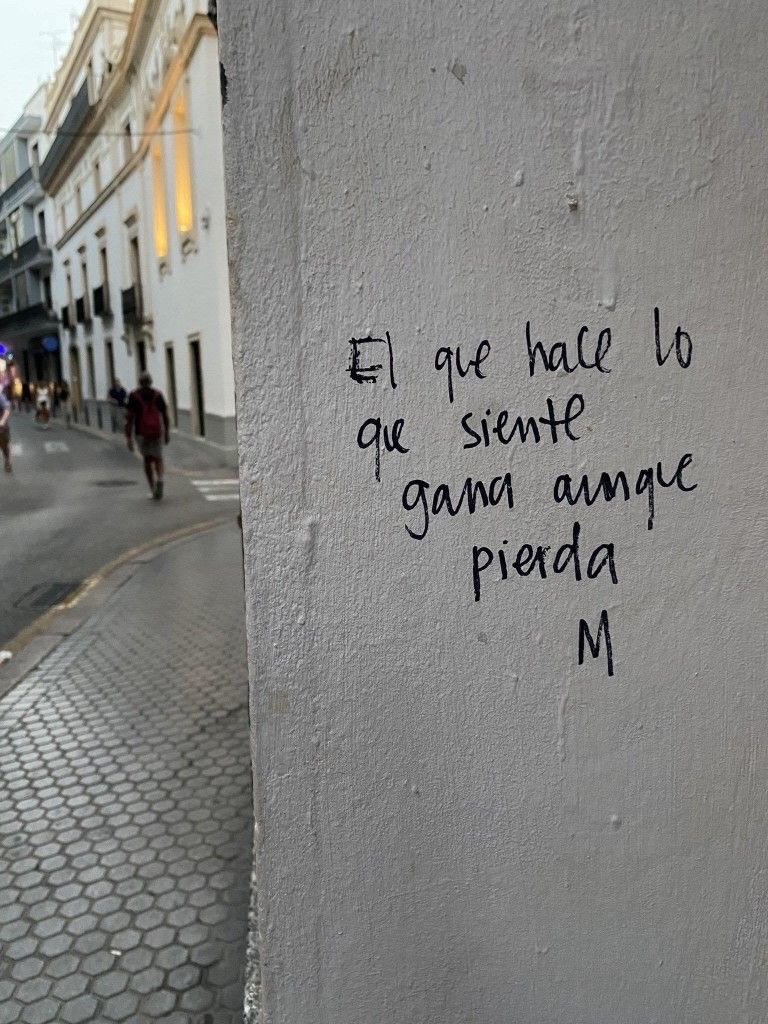 El que hace lo
que siente
gana aunque
pierda
M